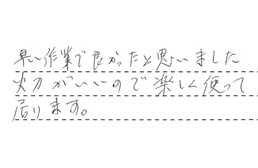 早い作業で良かったと思いました
火力がいいので楽しく使って
居ります。